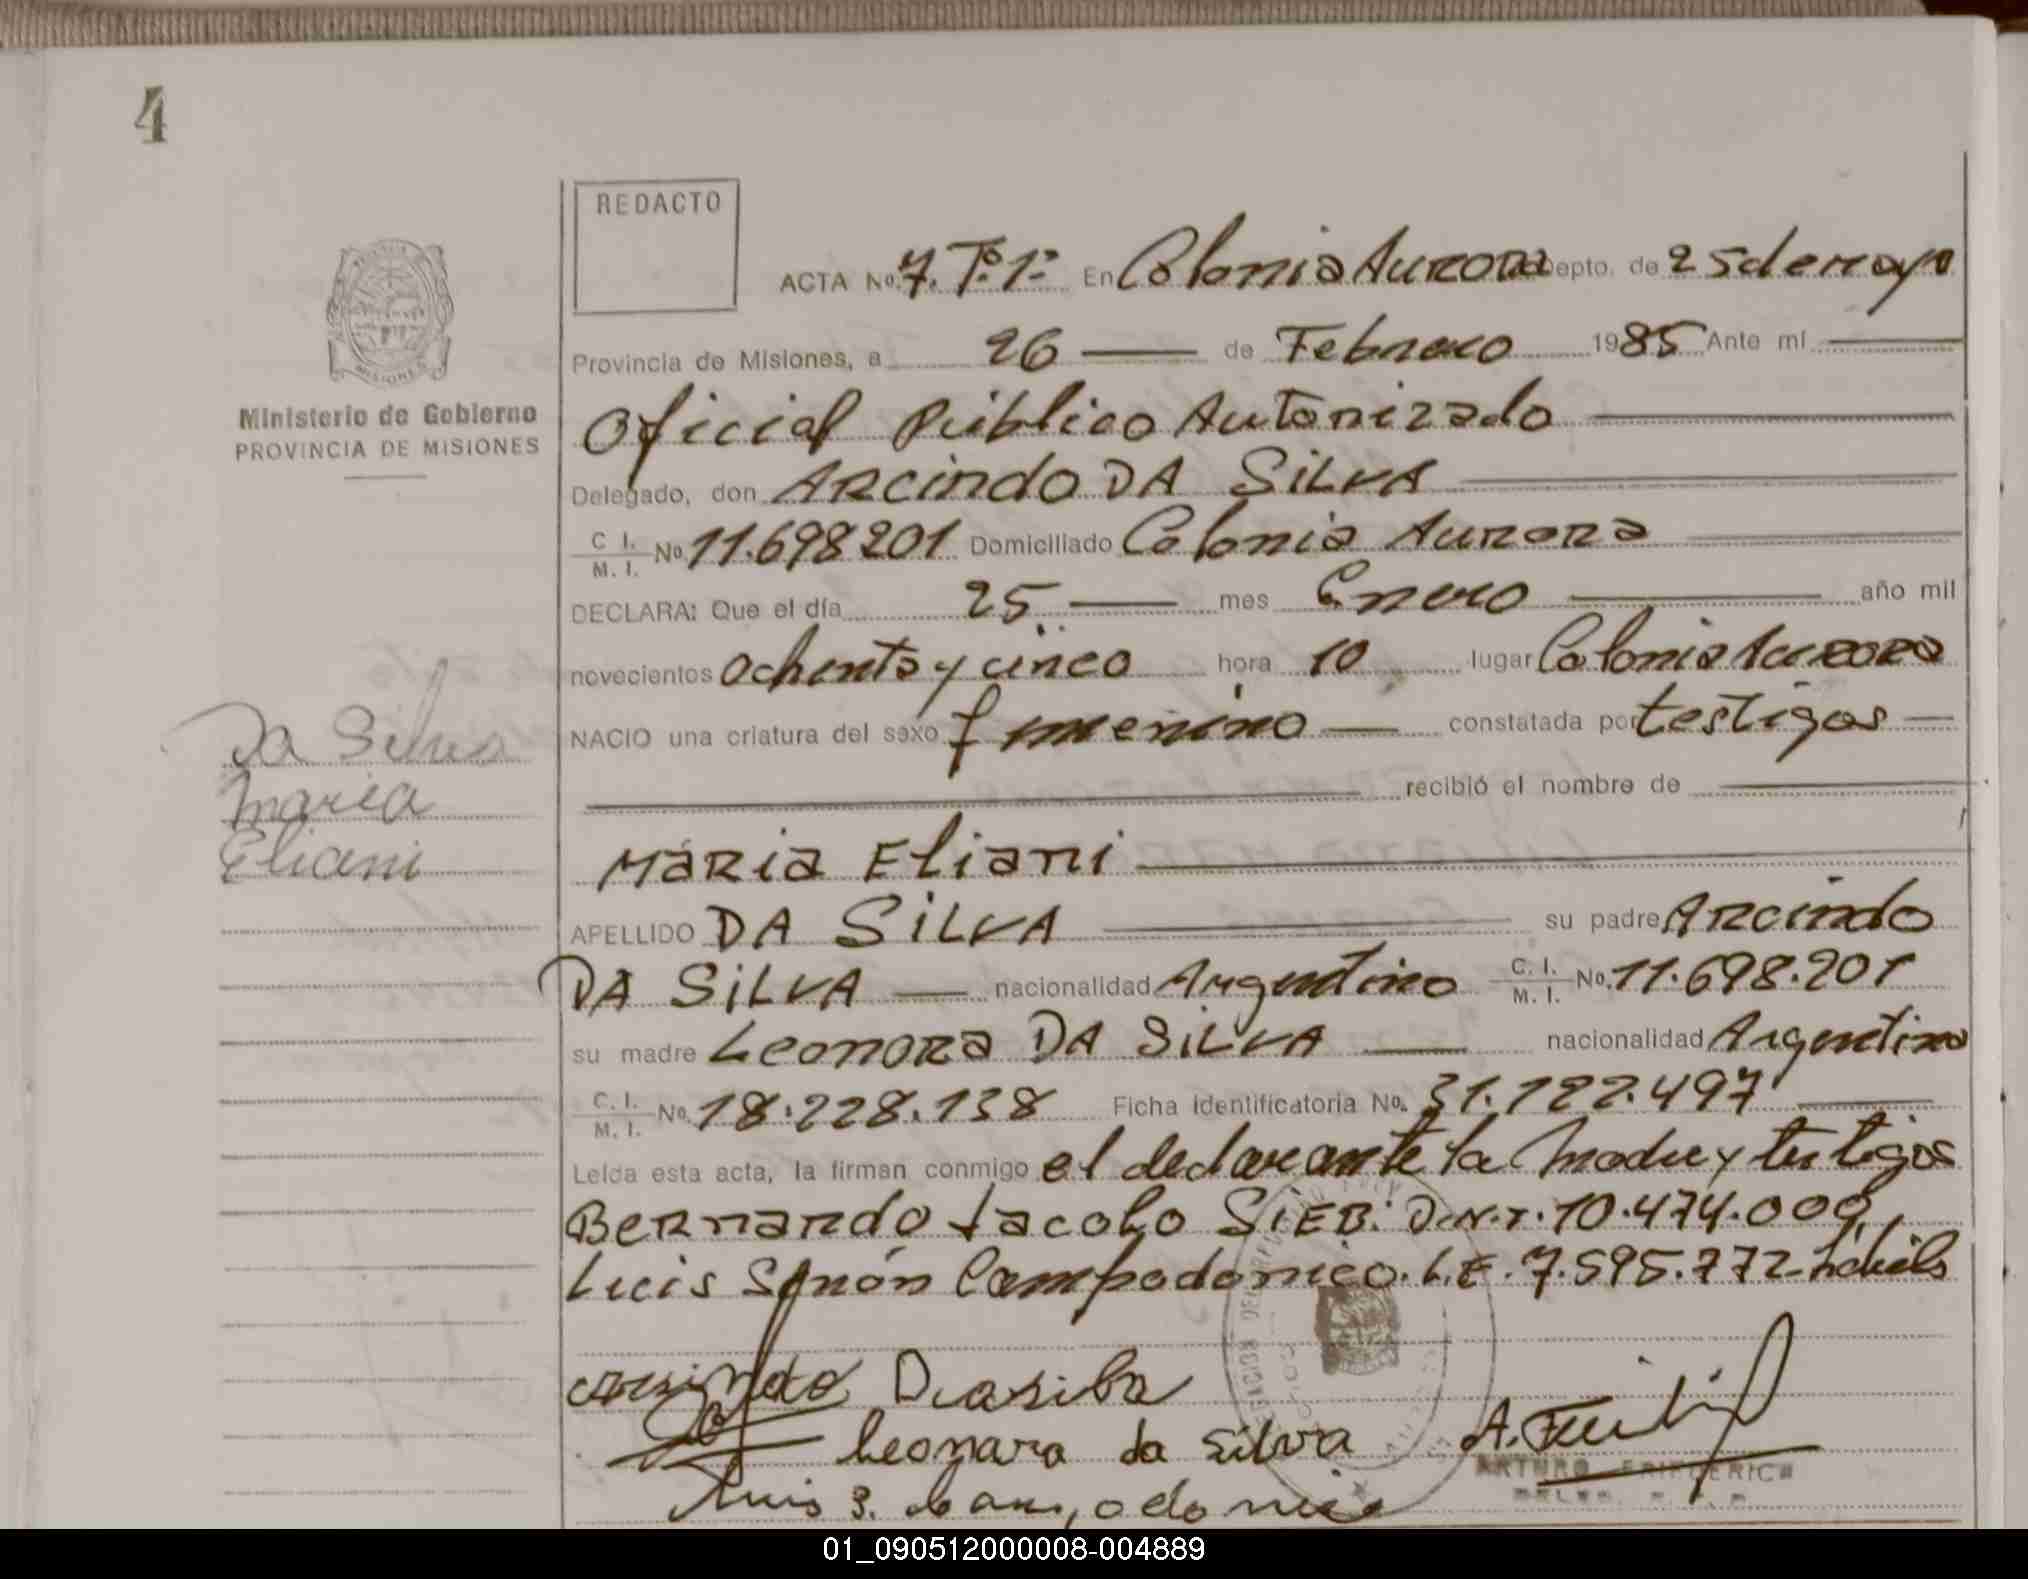 4
REDACTO
ACTA No. 7. Tº. 1º En Colonia Aurora Depto. de 25 de mayo
Provincia de Misiones, a 26 de Febrero 1985 Ante mí
Ministerio de Gobierno
PROVINCIA DE MISIONES
Oficial Público Autorizado
Delegado, don ARCindo DA SiLVA
C. I. / M. I. No. 11.698 201 Domiciliado Colonia Aurora
DECLARA: Que el día 25 mes Enero año mil
novecientos ochenta y cinco hora 10 lugar Colonia Aurora
NACIO una criatura del sexo femenino constatada por testigos
recibió el nombre de
Da Silva
Maria
Eliani
MARia Eliani
APELLIDO DA SiLVA su padre Arcindo
DA SiLVA nacionalidad Argentino C. I. / M. I. No. 11.698.201
su madre Leonora DA SiLVA nacionalidad Argentina
C. I. / M. I. No. 18.228.138 Ficha identificatoria No. 31.122.497
Leída esta acta, la firman conmigo el declarante la madre y testigos
Bernardo Jacobo SiEB. D.N.I. 10.474.000,
Luis Simón Campodonico. L.E. 7.595.772
Dasilva
Leonara da Silva
A.
ARTURO FRIEDERICH
Luis S.
MISIONES
01_090512000008-004889